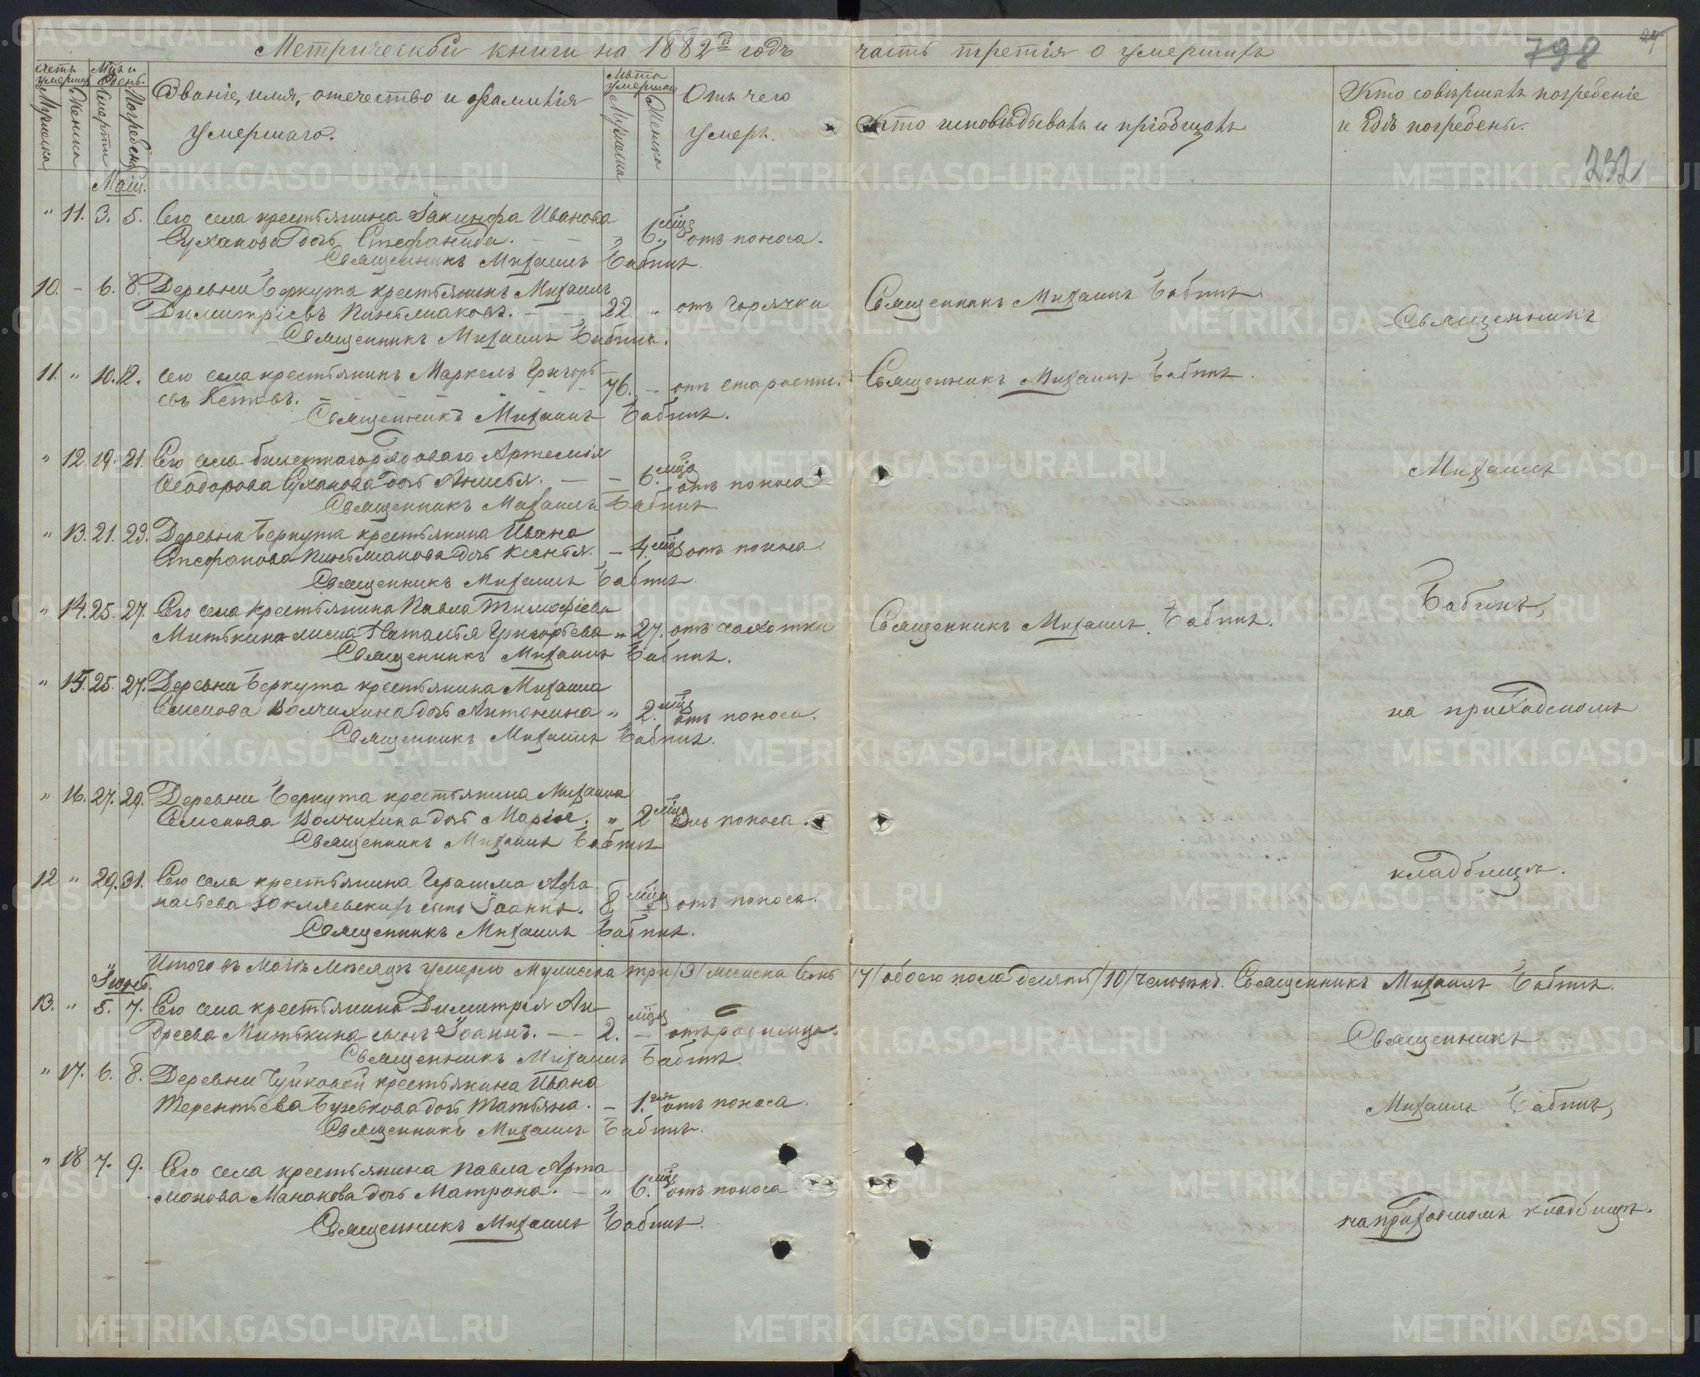 Метрической книги на 1882й годъ часть третія о умершихъ
792
24
Счетъ умершихъ
Мужеска
Женска
Мѣсяцъ и день
Смерти
Погребен.
Званіе, имя, отечество и фамилія умершаго.
Лѣта умершаго
Мужеска
Женска
Отъ чего умеръ.
Кто исповѣдывалъ и пріобщалъ
Кто совершалъ погребеніе и гдѣ погребены.
232
Май.
" 11. 3. 5. Сего села крестьянина Іакинфа Иванова
Суханова дочь Стефанида. — — " 6 мцъ отъ поноса.
Священникъ Михаилъ Бабинъ.
10. - 6. 8. Деревни Беркута крестьянинъ Михаилъ
Димитріевъ — 22 " отъ горячки
Священникъ Михаилъ Бабинъ
Священникъ Михаилъ Бабинъ.
Священникъ
11. " 10. 12. Сего села крестьянинъ Маркелъ Григорь-
евъ Кетовъ. 76. — отъ старости.
Священникъ Михаилъ Бабинъ.
Священникъ Михаилъ Бабинъ.
" 12. 19. 21. Сего села Артемія
Ѳеодорова Суханова дочь — — 6. мцъ отъ поноса
Священникъ Михаилъ Бабинъ.
Михаилъ
" 13. 21. 23. Деревни Беркута крестьянина Ивана
Стефанова дочь Ксенія. — 4. мцъ отъ поноса.
Священникъ Михаилъ Бабинъ.
Бабинъ,
" 14. 25. 27. Сего села крестьянина Павла Тимофіева
Митькина жена Наталья Григорьева " 27. отъ чахотки
Священникъ Михаилъ Бабинъ.
Священникъ Михаилъ Бабинъ.
" 15. 25. 27. Деревни Беркута крестьянина Михаила
Семенова Волчихина дочь Антонина " 2. мцъ отъ поноса.
Священникъ Михаилъ Бабинъ.
на приходскомъ
" 16. 27. 29. Деревни Беркута крестьянина Михаила
Семенова Волчихина дочь Марія. " 2 мцъ отъ поноса.
Священникъ Михаилъ Бабинъ
кладбищѣ.
12 " 29. 31. Сего села крестьянина Герасима Афа-
насьева сынъ Іоаннъ. 8 мцъ отъ поноса.
Священникъ Михаилъ Бабинъ.
Итого въ Маѣ мѣсяцѣ умерло мужеска три /3/ женска семь /7/ обоего пола десять /10/ человѣкъ. Священникъ Михаилъ Бабинъ.
Іюнь.
13. " 5. 7. Сего села крестьянина Димитрія Ан-
дреева Митькина сынъ Іоаннъ. — — 2. мцъ — отъ родимца.
Священникъ Михаилъ Бабинъ.
Священникъ
" 17. 6. 8. Деревни Чуйковой крестьянина Ивана
Терентьева дочь Татьяна. — 1. отъ поноса
Священникъ Михаилъ Бабинъ.
Михаилъ Бабинъ,
" 18 7. 9. Сего села крестьянина Павла Арта-
монова Манакова дочь Матрона. — " 6. мцъ отъ поноса
Священникъ Михаилъ Бабинъ.
на приходскомъ кладбищѣ.
METRIKI.GASO-URAL.RU